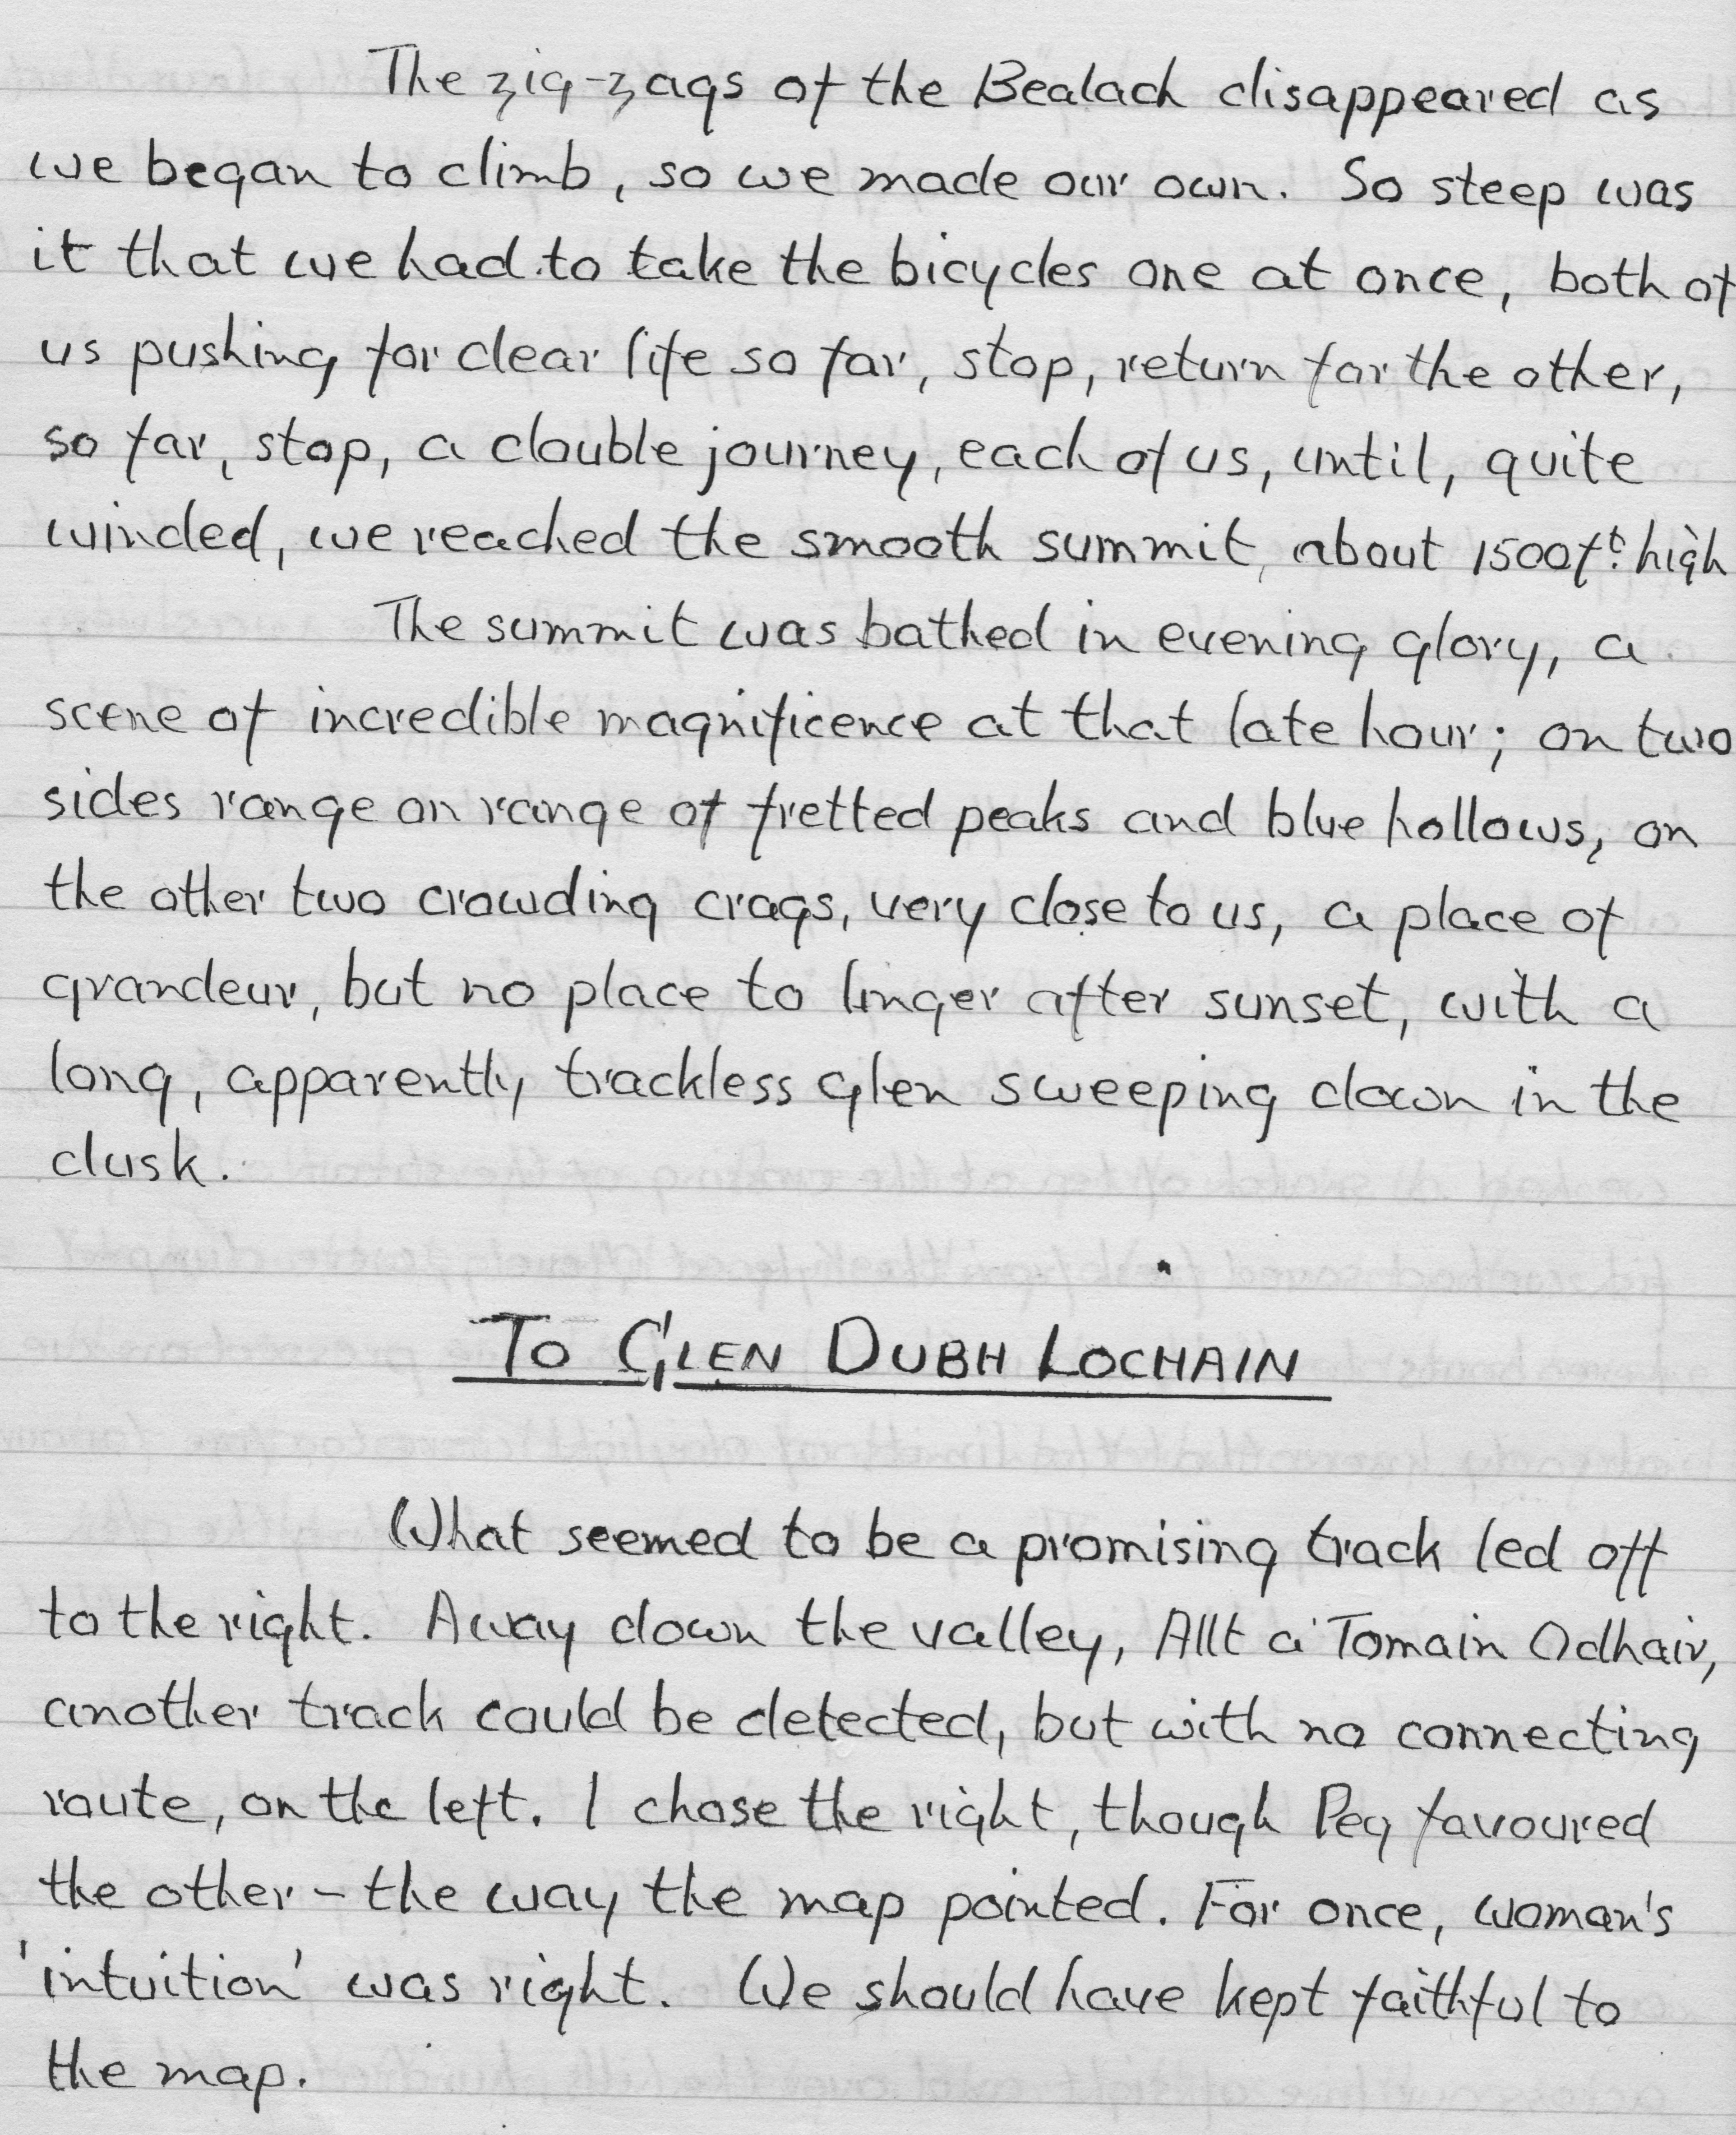 The zig-zags of the Bealach disappeared as
we began to climb, so we made our own. So steep was
it that we had to take the bicycles one at once, both of
us pushing for dear life so far, stop, return for the other,
so far, stop, a double journey, each of us, until, quite
winded, we reached the smooth summit, about 1500ft. high
The summit was bathed in evening glory, a
scene of incredible magnificence at that late hour; on two
sides range on range of fretted peaks and blue hollows, on
the other two crowding crags, very close to us, a place of
grandeur, but no place to linger after sunset, with a
long, apparently trackless glen sweeping down in the
dusk.
TO GLEN DUBH LOCHAIN
What seemed to be a promising track led off
to the right. Away down the valley, Allt a' Tomain Odhair,
another track could be detected, but with no connecting
route, on the left. I chose the right, though Peg favoured
the other - the way the map pointed. For once, woman's
'intuition' was right. We should have kept faithful to
the map.